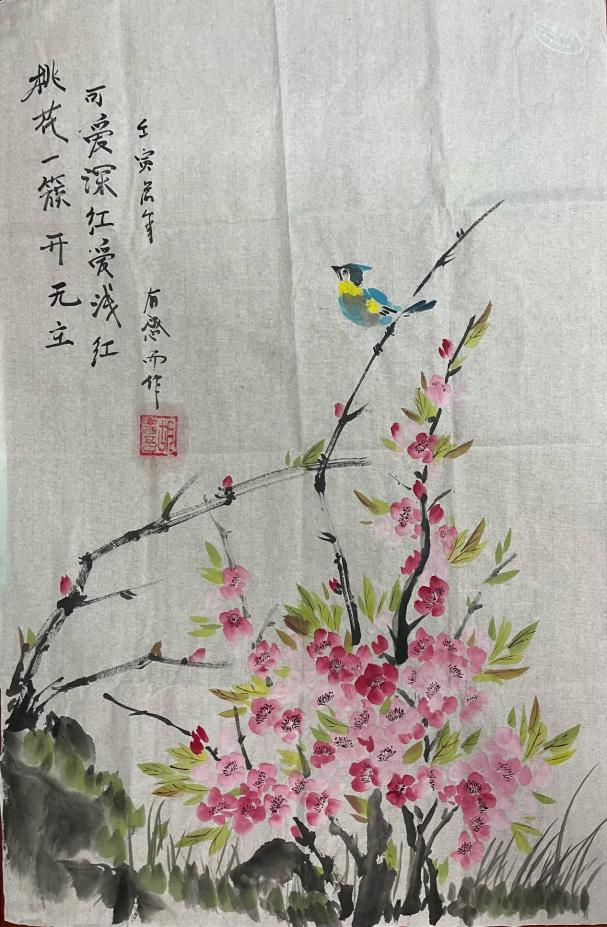 桃花一簇开无主
可爱深红爱浅红
壬寅年 而作